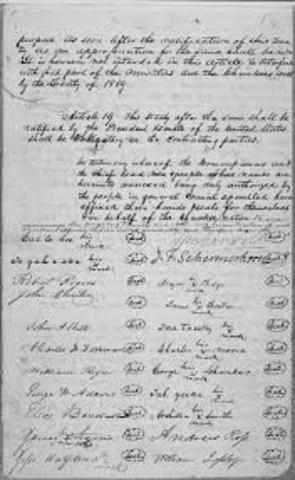 purpose as soon after the ratification of this Trea-
ty as an appropriation for the same shall be made
It is however not intended in this Article to interfere
with that part of the annuities due the Cherokees west
by the Treaty of 1819.
Article 19. This treaty after the same shall be
ratified by the President & Senate of the United States
shall be obligatory on the contracting parties.
In testimony whereof the Commissioners and
the Chiefs head men & people whose names are
hereunto annexed being duly authorized by
the people in general Council assembled have
affixed their hands & seals for themselves
and on behalf of the Cherokee nation
his mark Seal
J. F. Schermerhorn
Te gah e ske his mark Seal
Robert Rogers Seal
John Gunter Seal
John A Bell Seal
Charles F Foreman Seal
William Rogers Seal
George W Adair Seal
Elias Boudinot Seal
James Starr his mark Seal
Jesse Halfbreed his mark Seal
Major Ridge his mark Seal
James Foster his mark Seal
Tesa Taesky his mark Seal
Charles Moore his mark Seal
George Chambers his mark Seal
Tah yeske his mark Seal
Archilla Smith his mark Seal
Andrew Ross Seal
William Lassley Seal